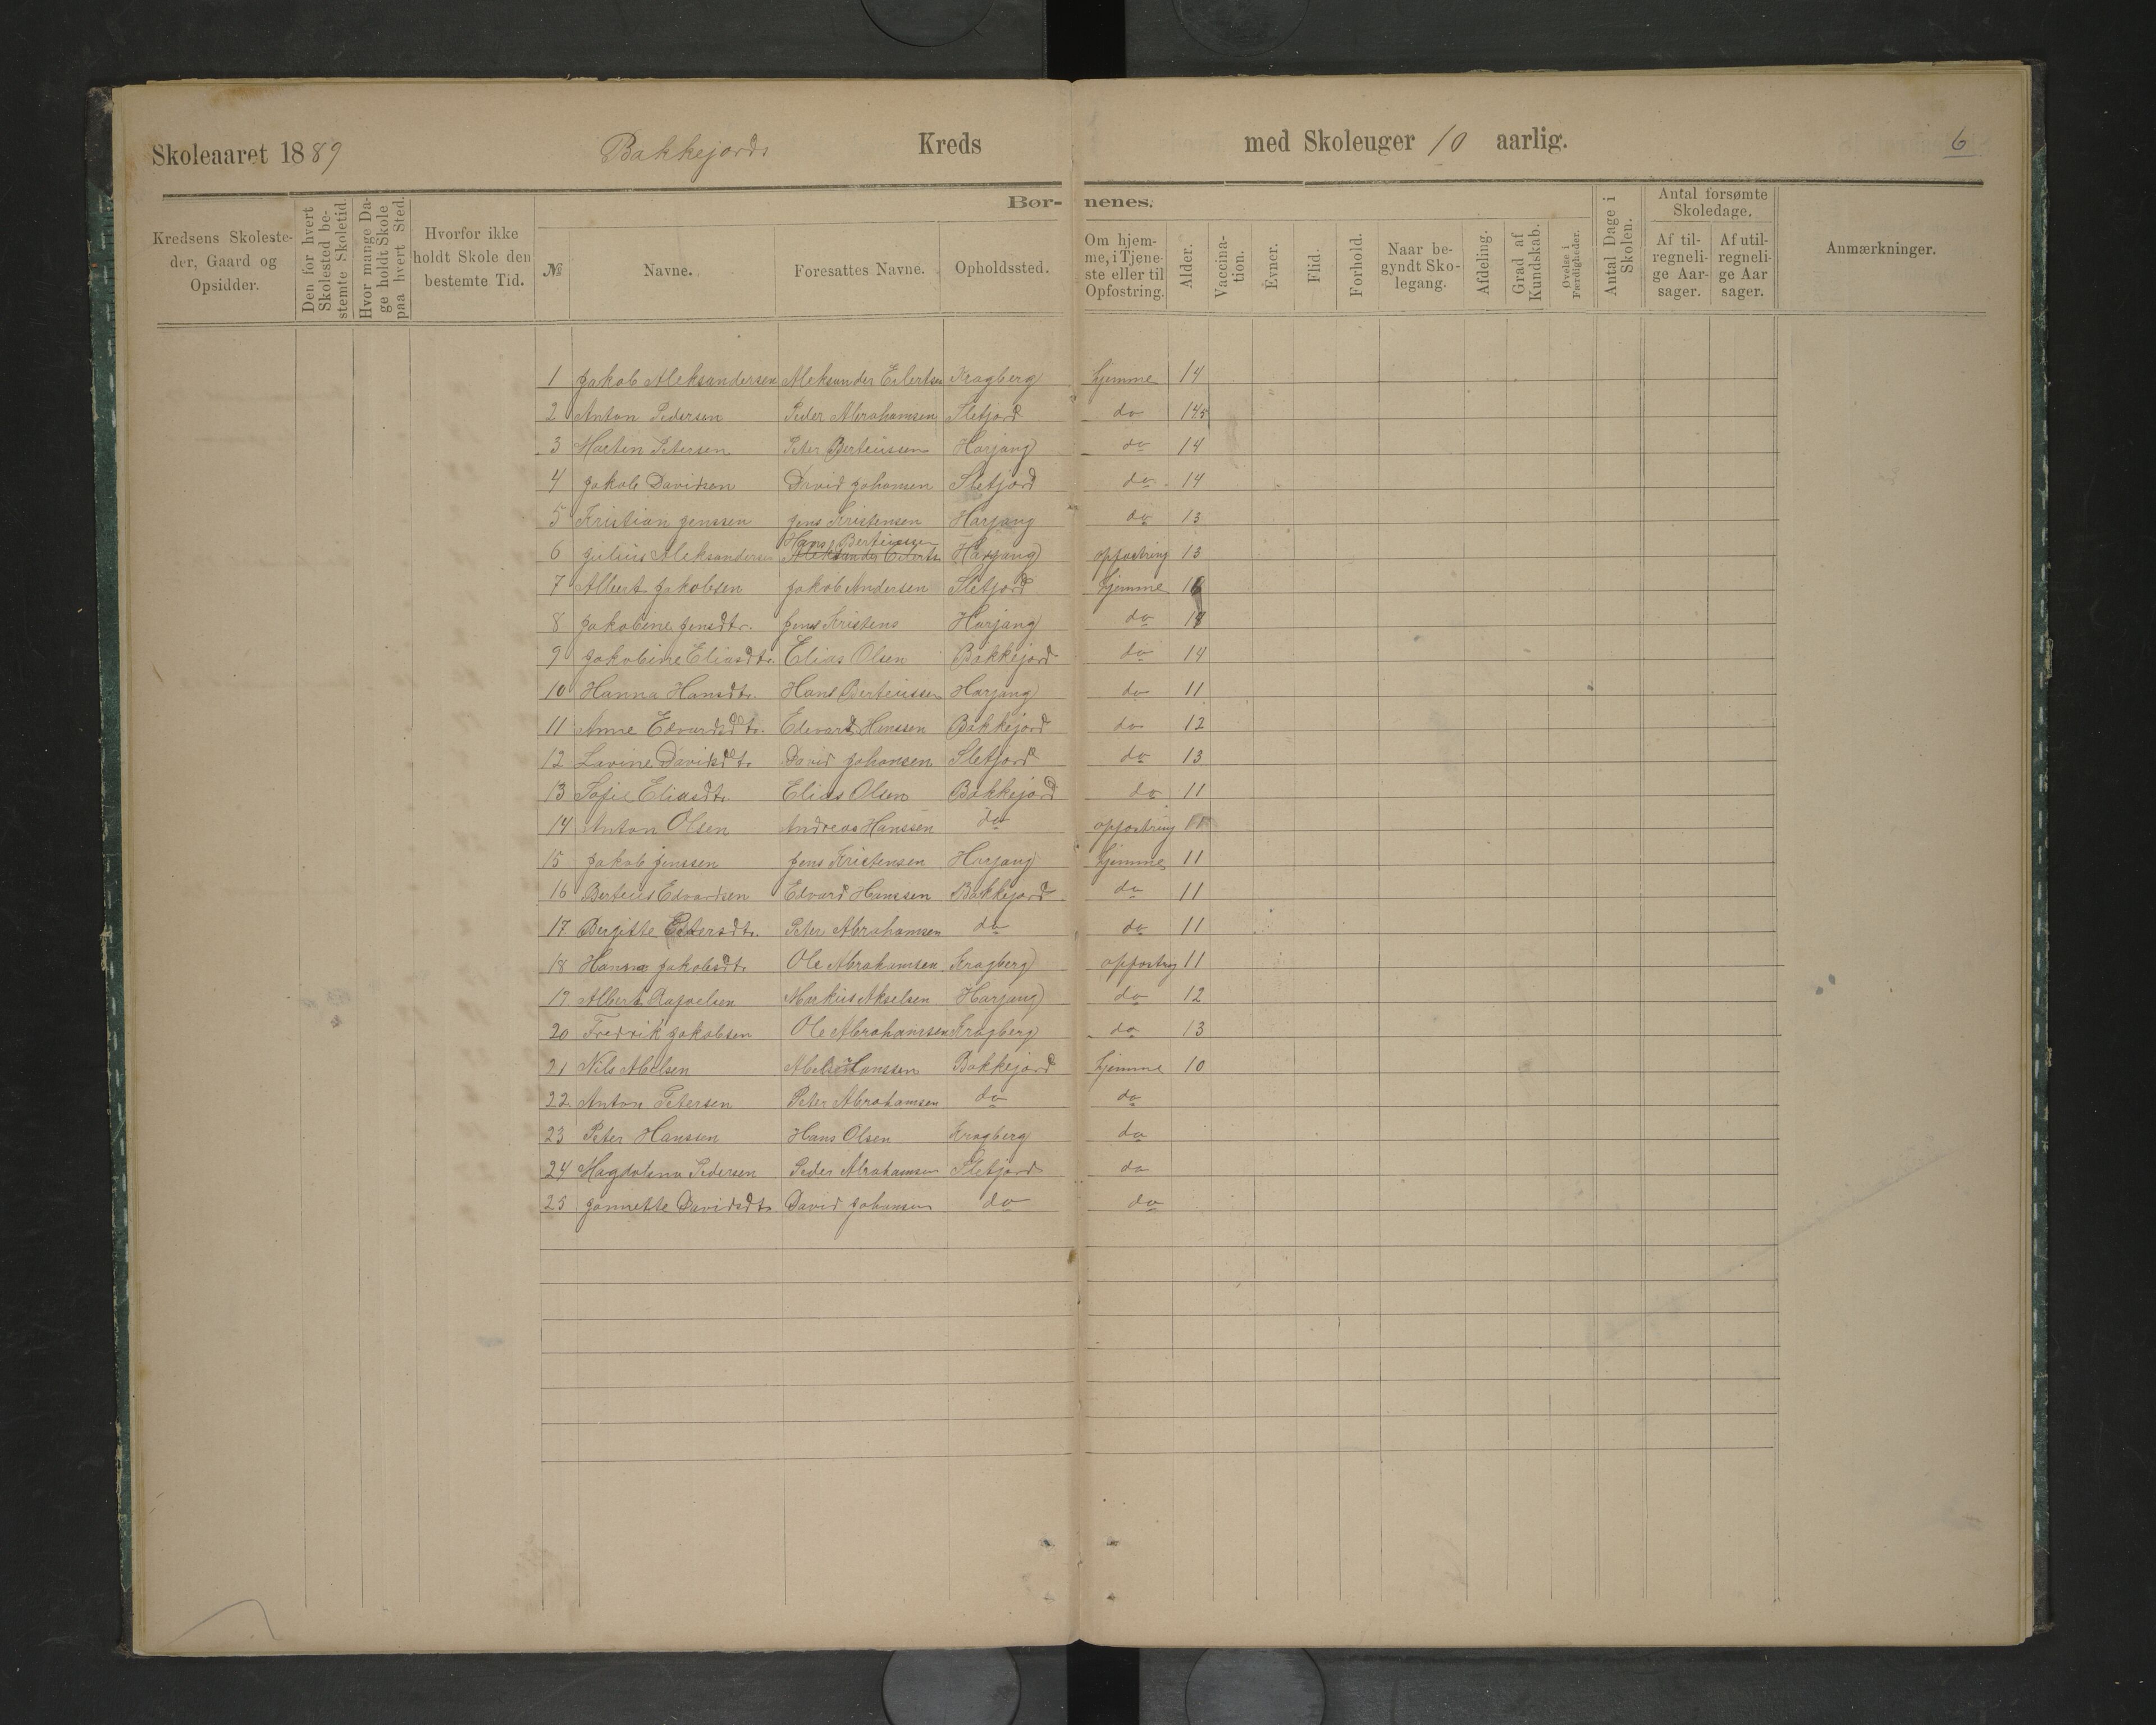 Skoleaaret 1889 Bakkejords Kreds med Skoleuger 10 aarlig. 6
Kredsens Skolesteder, Gaard og Opsidder.
Den for hvert Skolested bestemte Skoletid.
Hvor mange Dage holdt Skole paa hvert Sted.
Hvorfor ikke holdt Skole den bestemte Tid.
Børnenes.
№ Navne. Foresattes Navne. Opholdssted.
Om hjemme, i Tjeneste eller til Opfostring.
Alder.
Vaccination.
Evner.
Flid.
Forhold.
Naar begyndt Skolegang.
Afdeling.
Grad af Kundskab.
Øvelse i Færdigheder.
Antal Dage i Skolen.
Antal forsømte Skoledage.
Af tilregnelige Aarsager.
Af utilregnelige Aarsager.
Anmærkninger.
1 Jakob Aleksandersen Aleksander Eilertsen Kragberg hjemme 14
2 Anton Pedersen Peder Abrahamsen Sletjord do 145
3 Martin Petersen Peter Berteussen Harjang do 14
4 Jakob Davidsen David Johansen Sletjord do 14
5 Kristian Jenssen Jens Kristensen Harjang do 13
6 Julius Aleksandersen Aleksander Eilerts Hans Berteussen Harjang opfostring 13
7 Albert Jakobsen Jakob Andersen Sletjord hjemme 16
8 Jakobine Jensdtr. Jens Kristens Harjang do
9 Jakobine Eliasdtr. Elias Olsen Bakkejord do 14
10 Hanna Hansdtr. Hans Berteussen Harjang do 11
11 Anne Edvardsdtr. Edevard Hanssen Bakkejord do 12
12 Lovine Davidsdtr. David Johansen Sletjord do 13
13 Sofie Eliasdtr. Elias Olsen Bakkejord do 11
14 Anton Olsen Andreas Hanssen do opfostring 11
15 Jakob Jenssen Jens Kristensen Harjang hjemme 11
16 Berteus Edvardsen Edvard Hanssen Bakkejord do 11
17 Bergitte Petersdtr. Peter Abrahamsen do do 11
18 Hanna Jakobsdtr. Ole Abrahamsen Kragberg opfostrng 11
19 Albert Rafaelsen Markus Akselsen Harjang do 12
20 Fredrik Jakobsen Ole Abrahamsen Kragberg do 13
21 Nils Abelsen Abel Hanssen Bakkejord hjemme 10
22 Anton Petersen Peter Abrahamsen do do
23 Peter Hanssen Hans Olsen Kragberg do
24 Magdalena Pedersen Peder Abrahamsen Sletjord do
25 Jannette Davidsdtr David Johansen do do